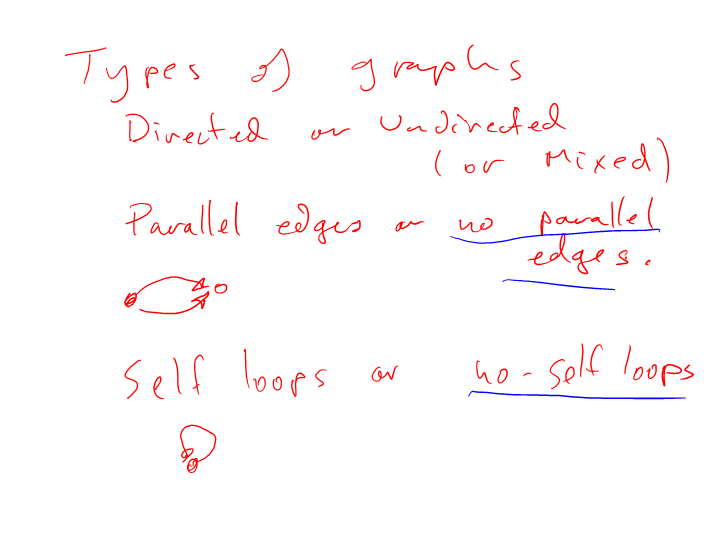 Types of graphs
Directed or Undirected
(or Mixed)
Parallel edges or no parallel
edges.
Self loops or no-self loops